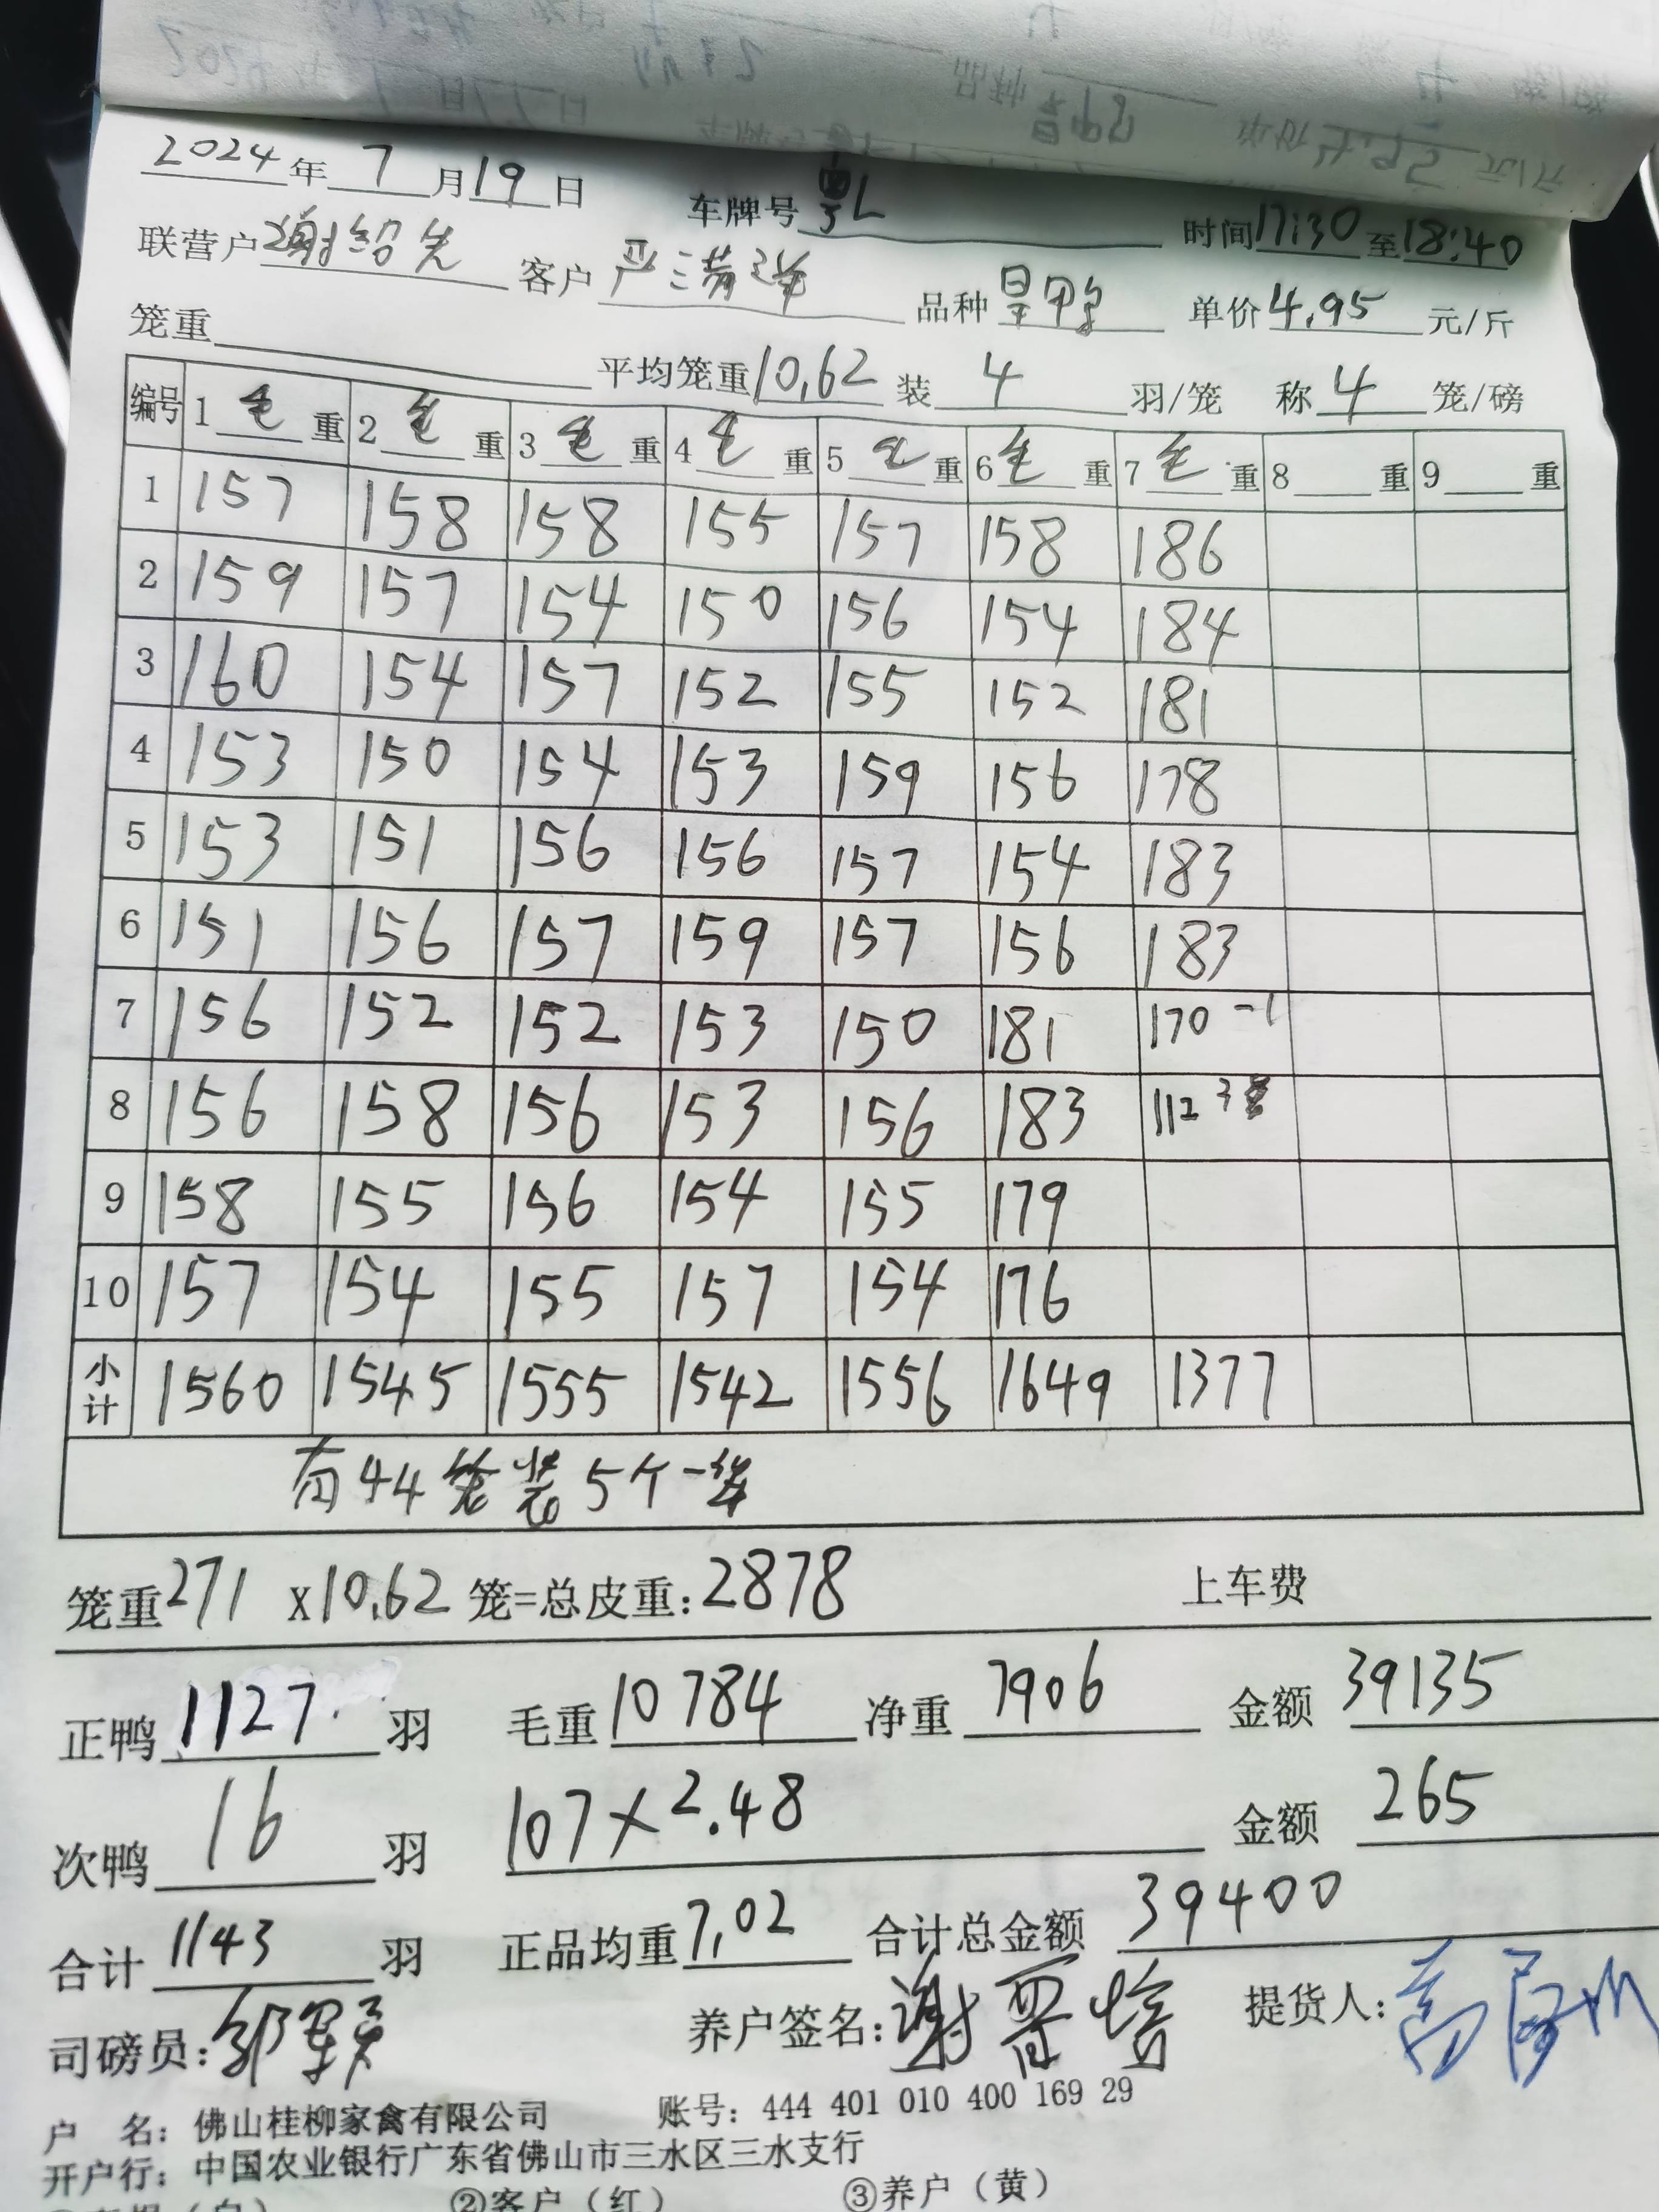 2024年7月19日 车牌号 粤L 时间17:30至18:40
联营户谢绍先 客户 严三满 品种 旱鸭 单价4.95元/斤
笼重 平均笼重10.62装4羽/笼 称4笼/磅
编号 1毛重 2毛重 3毛重 4毛重 5毛重 6毛重 7毛重 8 重 9 重
1 157 158 158 155 157 158 186
2 159 157 154 150 156 154 184
3 160 154 157 152 155 152 181
4 153 150 154 153 159 156 178
5 153 151 156 156 157 154 183
6 151 156 157 159 157 156 183
7 156 152 152 153 150 181 170-1
8 156 158 156 153 156 183 112 3笼
9 158 155 156 154 155 179
10 157 154 155 157 154 176
小计 1560 1545 1555 1542 1556 1649 1377
有44笼装5个一笼
笼重271 X10.62笼=总皮重:2878 上车费
正鸭1127.羽 毛重10784 净重7906 金额39135
次鸭16羽 107×2.48 金额265
合计1143羽 正品均重7.02 合计总金额39400
司磅员: 养户签名:谢 提货人:高
户 名: 佛山桂柳家禽有限公司 账号: 444 401 010 400 169 29
开户行: 中国农业银行广东省佛山市三水区三水支行
②客户(红) ③养户(黄)